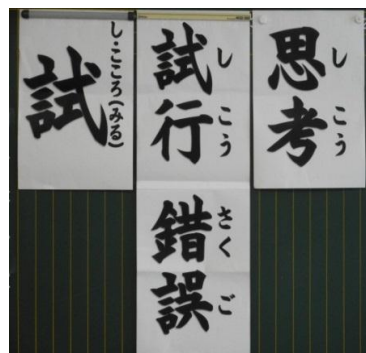 思考
しこう
試行錯誤
しこうさくご
試
し・こころ(みる)